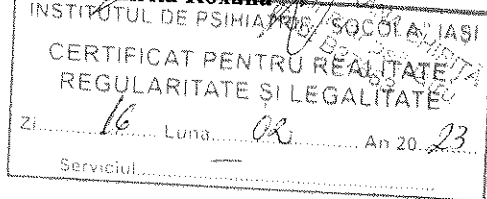 Roxana
INSTITUTUL DE PSIHIATRIE "SOCOLA" IAȘI
CERTIFICAT PENTRU REALITATE
REGULARITATE ȘI LEGALITATE
Zi 16 Luna 02 An 2023
Serviciul